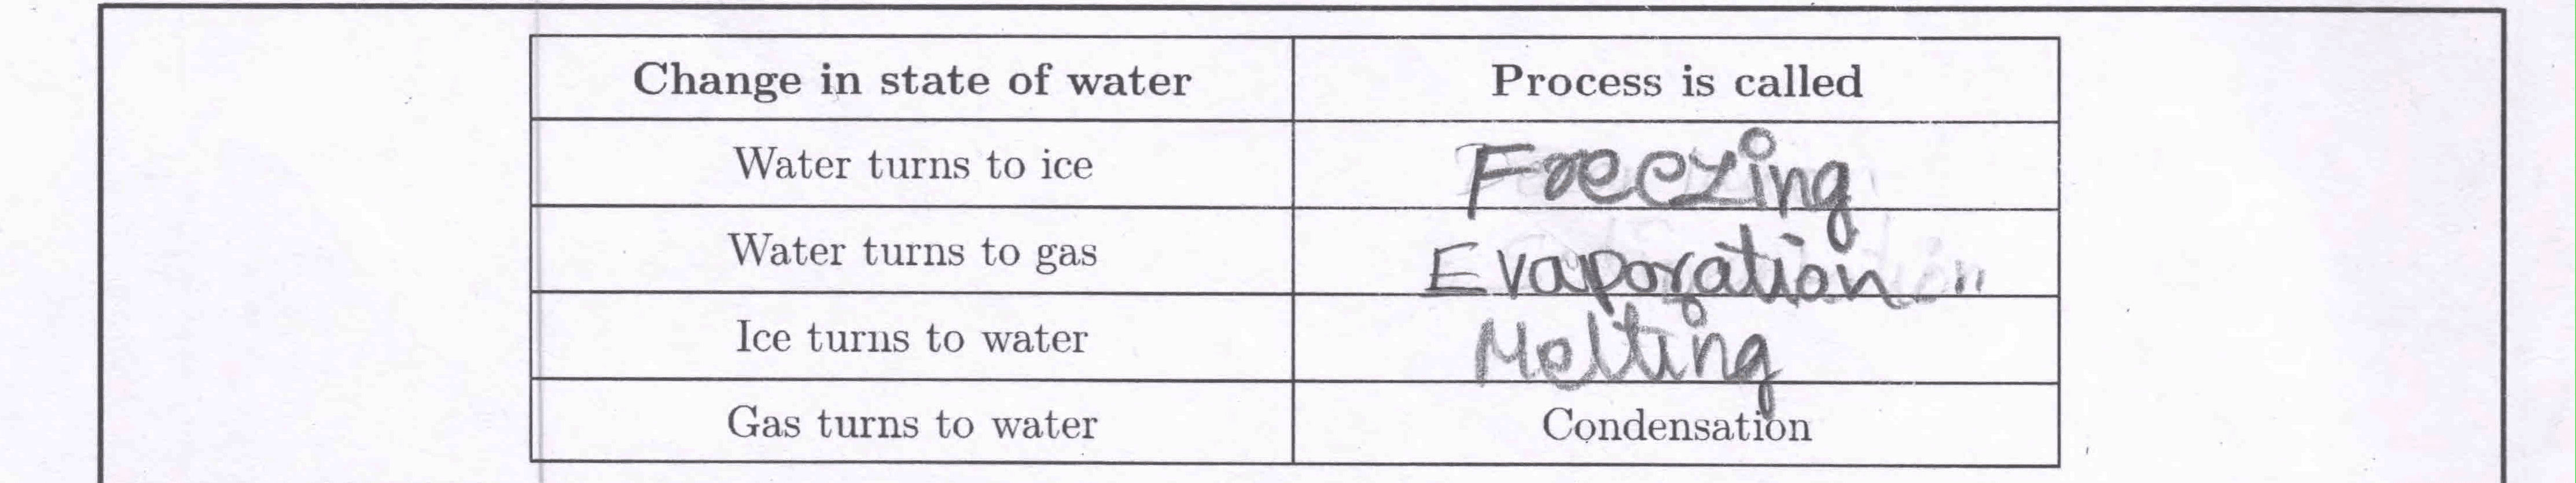 Change in state of water Process is called
Water turns to ice Freezing
Water turns to gas Evaporation
Ice turns to water Melting
Gas turns to water Condensation